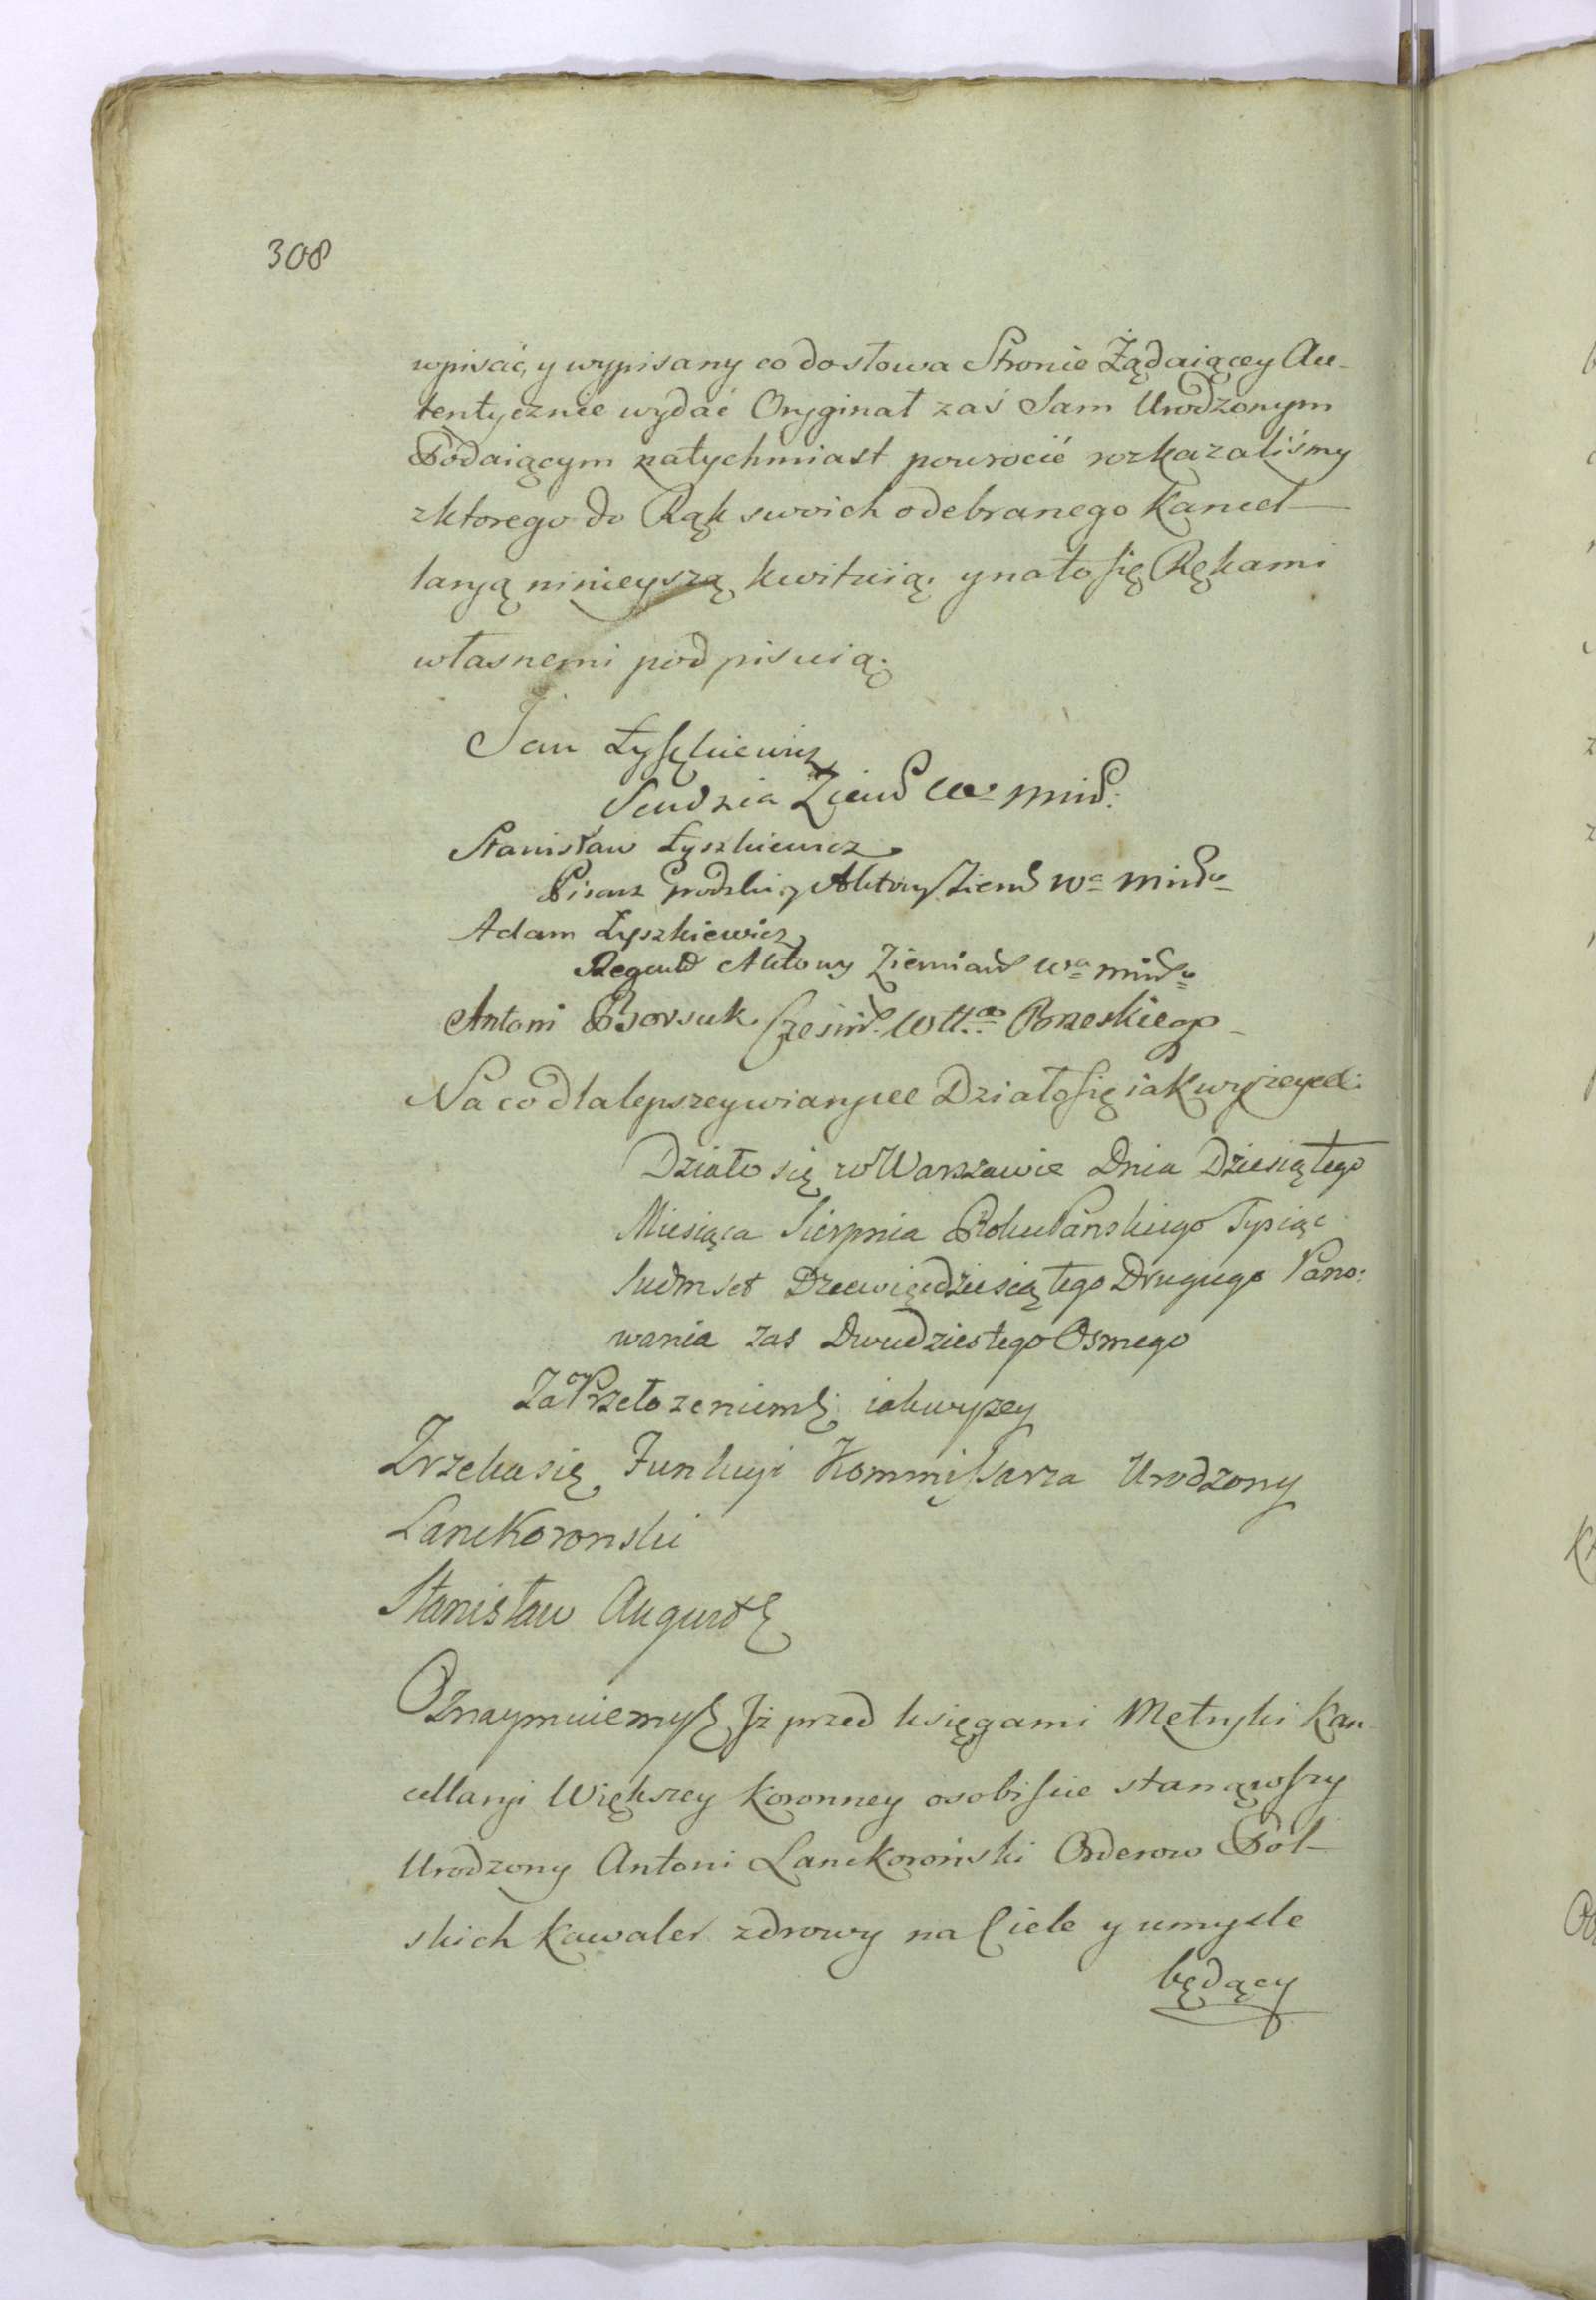 308
wpisać, y wypisany co do słowa Stronie Żądaiącey Au-
tentycznie wydać Oryginał zaś Sam Urodzonym
Podaiącym natychmiast powrocić rozkazaliśmy
z ktorego do Rąk swoich odebranego Kancel-
laryą ninieyszą kwituią. y na to się Rękami
własnemi podpisuią.
Jan Łyszkiewicz
Sendzia Ziems Wa Mins:
Stanisław Łyszkiewicz
Pisarz Grodzki y Aktowy Ziems Wa Minsa
Adam Łyszkiewicz
Regent Aktowy Ziemians Wa Minsa
Antoni Borsuk Cześnik Wttwa Brzeskiego
Na co dla lepszey wiary ett Działo się iak wyżey ett:
Działo się w Warszawie Dnia Dziesiątego
Miesiąca Sierpnia Roku Panskiego Tysiąc
Siedmset Dziewiędziesiątego Drugiego Pano:
wania zas Dwudziestego Osmego
Za Przełożeniem iak wyzey
Zrzeka się Funkcyi Kommissarza Urodzony
Lanckoronski
Stanisław August
Oznaymuiemy Iż przed księgami Metryki Kan-
cellaryi Większey Koronney osobiscie stanąwszy
Urodzony Antoni Lanckoroński Orderow Pol-
skich Kawaler zdrowy na Ciele y umysle
będący